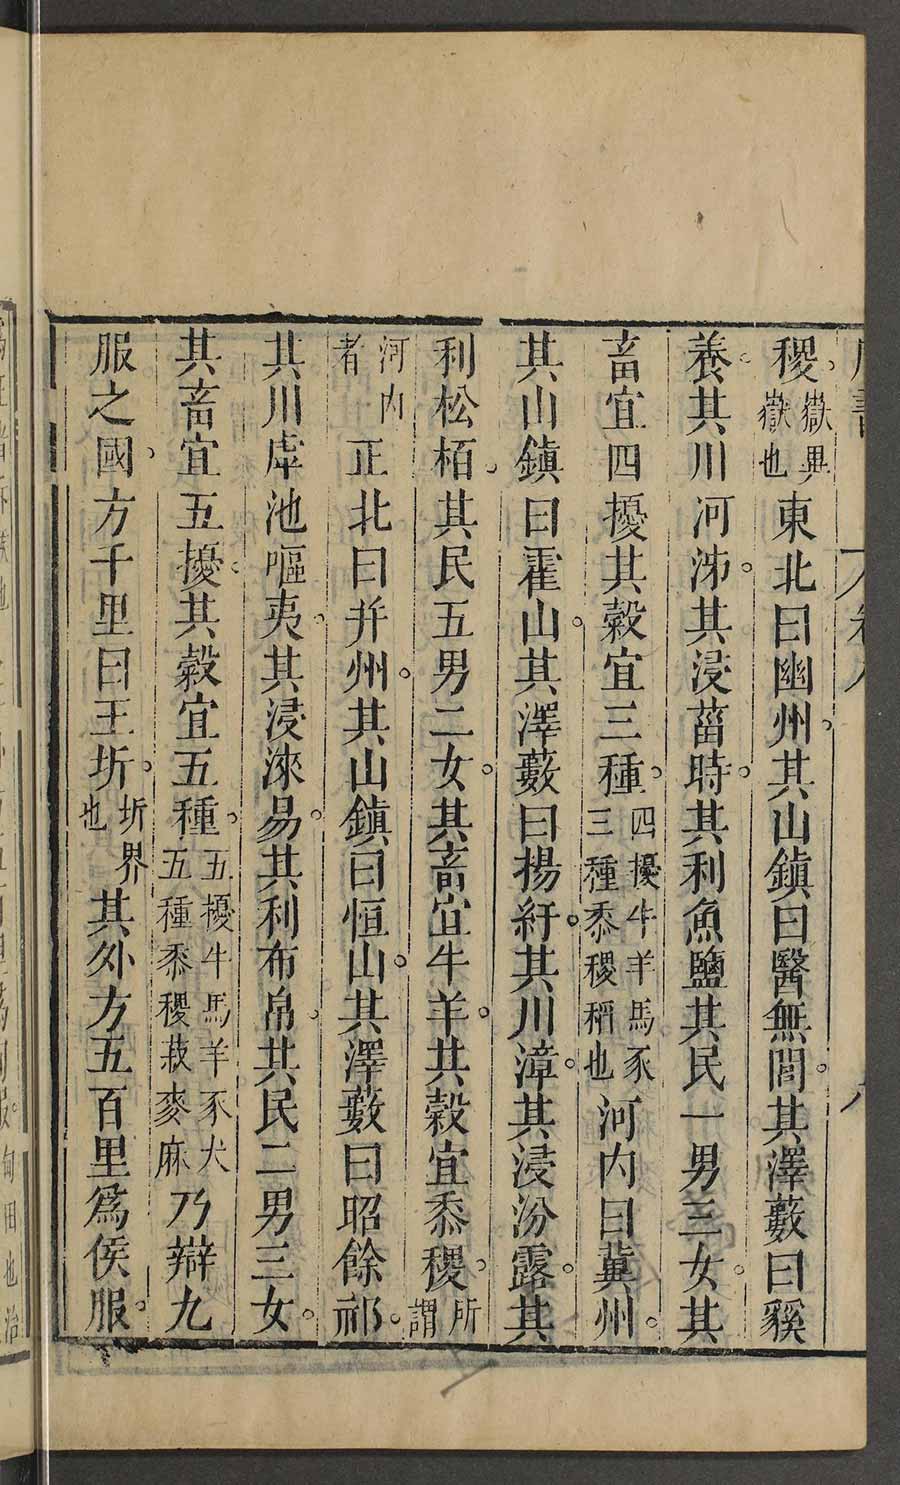 稷嶽嶽異也東北曰幽州其山鎮曰醫無閭其澤藪曰貕
養其川河泲其浸菑時其利魚鹽其民一男三女其
畜宜四擾其穀宜三種四擾牛羊馬豕三種黍稷稻也河内曰冀州
其山鎮曰霍山其澤藪曰揚紆其川漳其浸汾露其
利松栢其民五男二女其畜宜牛羊其穀宜黍稷所謂
河内者正北曰并州其山鎮曰恒山其澤藪曰昭餘祁
其川虖池嘔夷其浸淶易其利布帛其民二男三女
其畜宜五擾其穀宜五種五擾牛馬羊豕犬五種黍稷菽麥麻乃辯九
服之國方千里曰王圻圻界也其外方五百里爲侯服